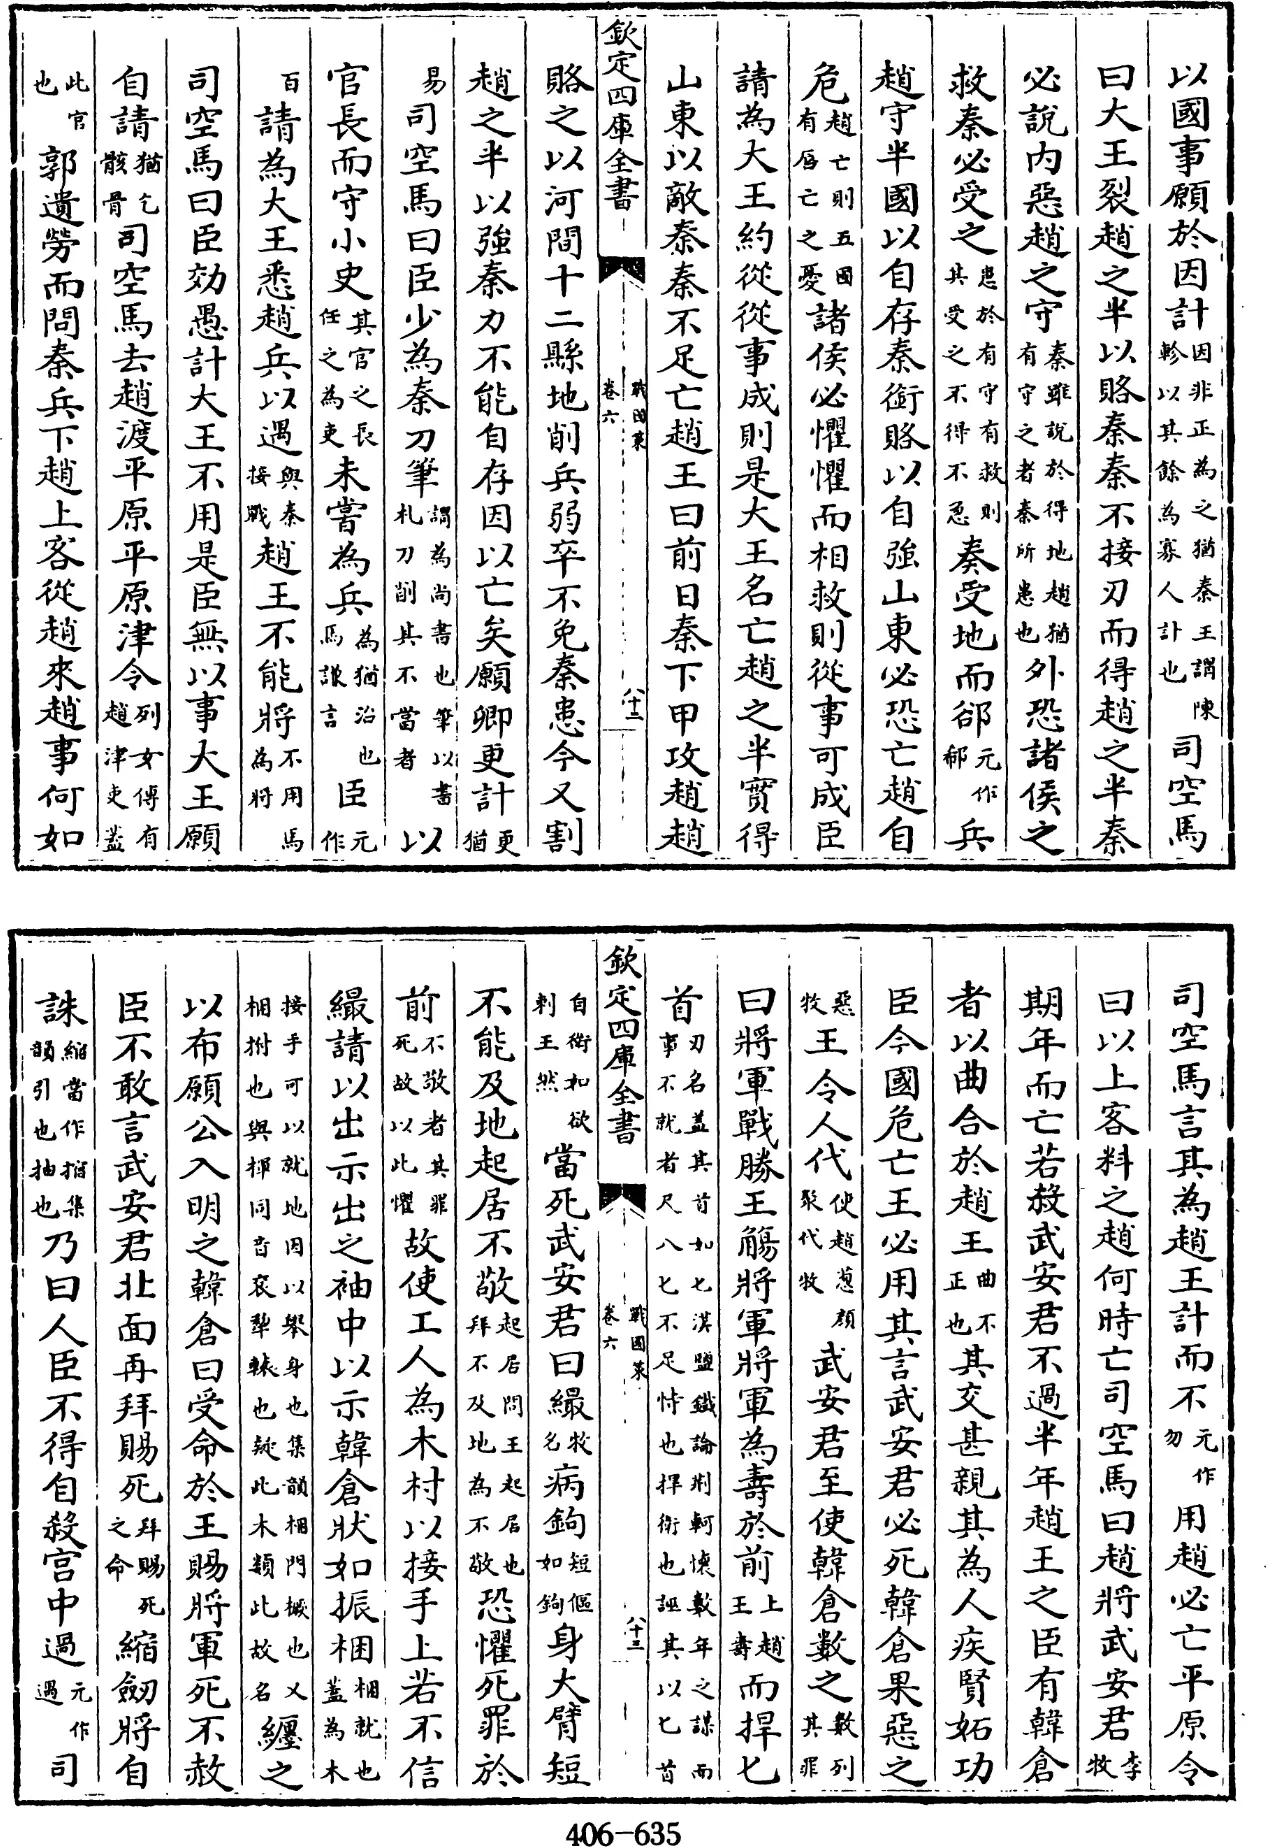 以國事願於因計因非正為之猶秦王謂陳軫以其餘為寡人計也司空馬
曰大王裂趙之半以賂秦秦不接刃而得趙之半秦
必說内惡趙之守秦雖說於得地趙猶有守之者秦所患也外恐諸侯之
救秦必受之患於有守有救則其受之不得不急秦受地而郤元作郗兵
趙守半國以自存秦銜賂以自強山東必恐亡趙自
危趙亡則五國有唇亡之憂諸侯必懼懼而相救則從事可成臣
請為大王約從從事成則是大王名亡趙之半實得
山東以敵秦秦不足亡趙王曰前日秦下甲攻趙趙
欽定四庫全書 戰國策 卷六 八十二
賂之以河間十二縣地削兵弱卒不免秦患今又割
趙之半以強秦力不能自存因以亡矣願卿更計更猶
易司空馬曰臣少為秦刀筆謂為尚書也筆以書札刀削其不當者以
官長而守小史其官之長任之為吏未嘗為兵為猶治也馬謙言臣元作
百請為大王悉趙兵以遇與秦接戰趙王不能將不用馬為將
司空馬曰臣効愚計大王不用是臣無以事大王願
自請猶乞骸骨司空馬去趙渡平原平原津令列女傳有趙津吏蓋
此官也郭遺勞而問秦兵下趙上客從趙來趙事何如
司空馬言其為趙王計而不元作勿用趙必亡平原令
曰以上客料之趙何時亡司空馬曰趙將武安君李牧
期年而亡若殺武安君不過半年趙王之臣有韓倉
者以曲合於趙王曲不正也其交甚親其為人疾賢妬功
臣今國危亡王必用其言武安君必死韓倉果惡之
惡牧王令人代使趙蔥顔聚代牧武安君至使韓倉數之數列其罪
曰將軍戰勝王觴將軍將軍為壽於前上趙王壽而捍匕
首刃名蓋其首如匕漢鹽鐵論荆軻懷數年之謀而事不就者尺八匕不足恃也捍衛也誣其以匕首
欽定四庫全書 戰國策 卷六 八十三
自衛和欲刺王然當死武安君曰繓牧名病鉤短傴如鉤身大臂短
不能及地起居不敬起居問王起居也拜不及地為不敬恐懼死罪於
前不敬者其罪死故以此懼故使工人為木材以接手上若不信
繓請以出示出之袖中以示韓倉狀如振梱梱就也蓋為木
接手可以就地因以舉身也集韻梱門橛也乂梱拊也與揮同音袞犂轅也疑此木類此故名纏之
以布願公入明之韓倉曰受命於王賜將軍死不赦
臣不敢言武安君北面再拜賜死拜賜死之命縮劒將自
誅縮當作揊集韻引也抽也乃曰人臣不得自殺宫中過元作遇司
406-635